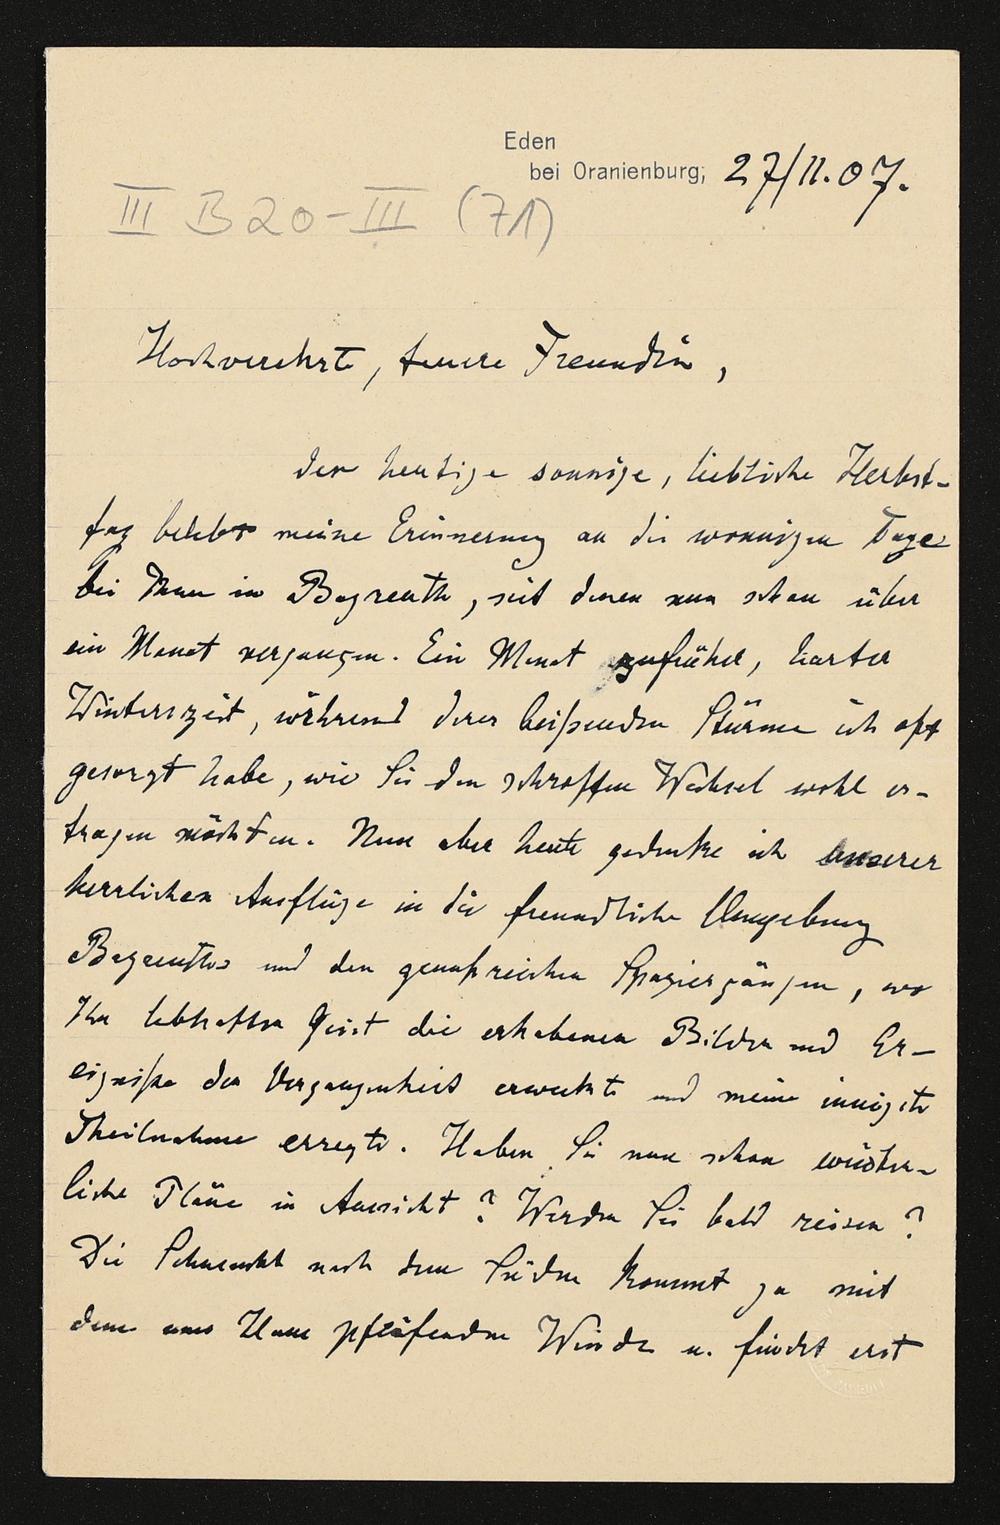 Eden
bei Oranienburg, 27/11.07.
III B 20-III (71)
Hochverehrte, teuere Freundin,
der heutige sonnige, liebliche Herbst-
tag belebt meine Erinnerung an die wonnigen Tage
bei Ihnen in Bayreuth, seit denen nun schon über
ein Monat vergangen. Ein Monat zu früher, harter
Winterszeit, während derer beißenden Stürme ich oft
gesorgt habe, wie Sie den schroffen Wechsel wohl er-
tragen möchten. Nun aber heute gedenke ich unserer
herrlichen Ausflüge in die freundliche Umgebung
Bayreuths und den genußreichen Spaziergängen, wo
Ihr lebhafter Geist die erhabenen Bilder und Er-
eigniße der Vergangenheit erweckte und meine innigste
Theilnahme erregte. Haben Sie nun schon winter-
liche Pläne in Aussicht? Werden Sie bald reisen?
Die Sehnsucht nach dem Süden kommt ja mit
dem ums Haus pfeifenden Winde u. findet erst